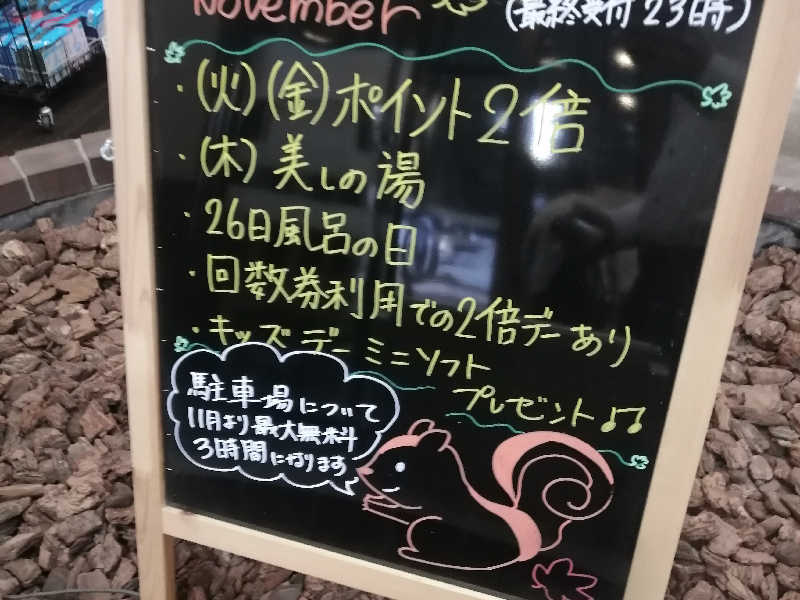 November
(最終受付 23時)
・(火)(金)ポイント2倍
・(木)美しの湯
・26日風呂の日
・回数券利用での2倍デーあり
・キッズデー ミニソフト
プレゼント♪♫
駐車場について
11月より最大無料
3時間になります